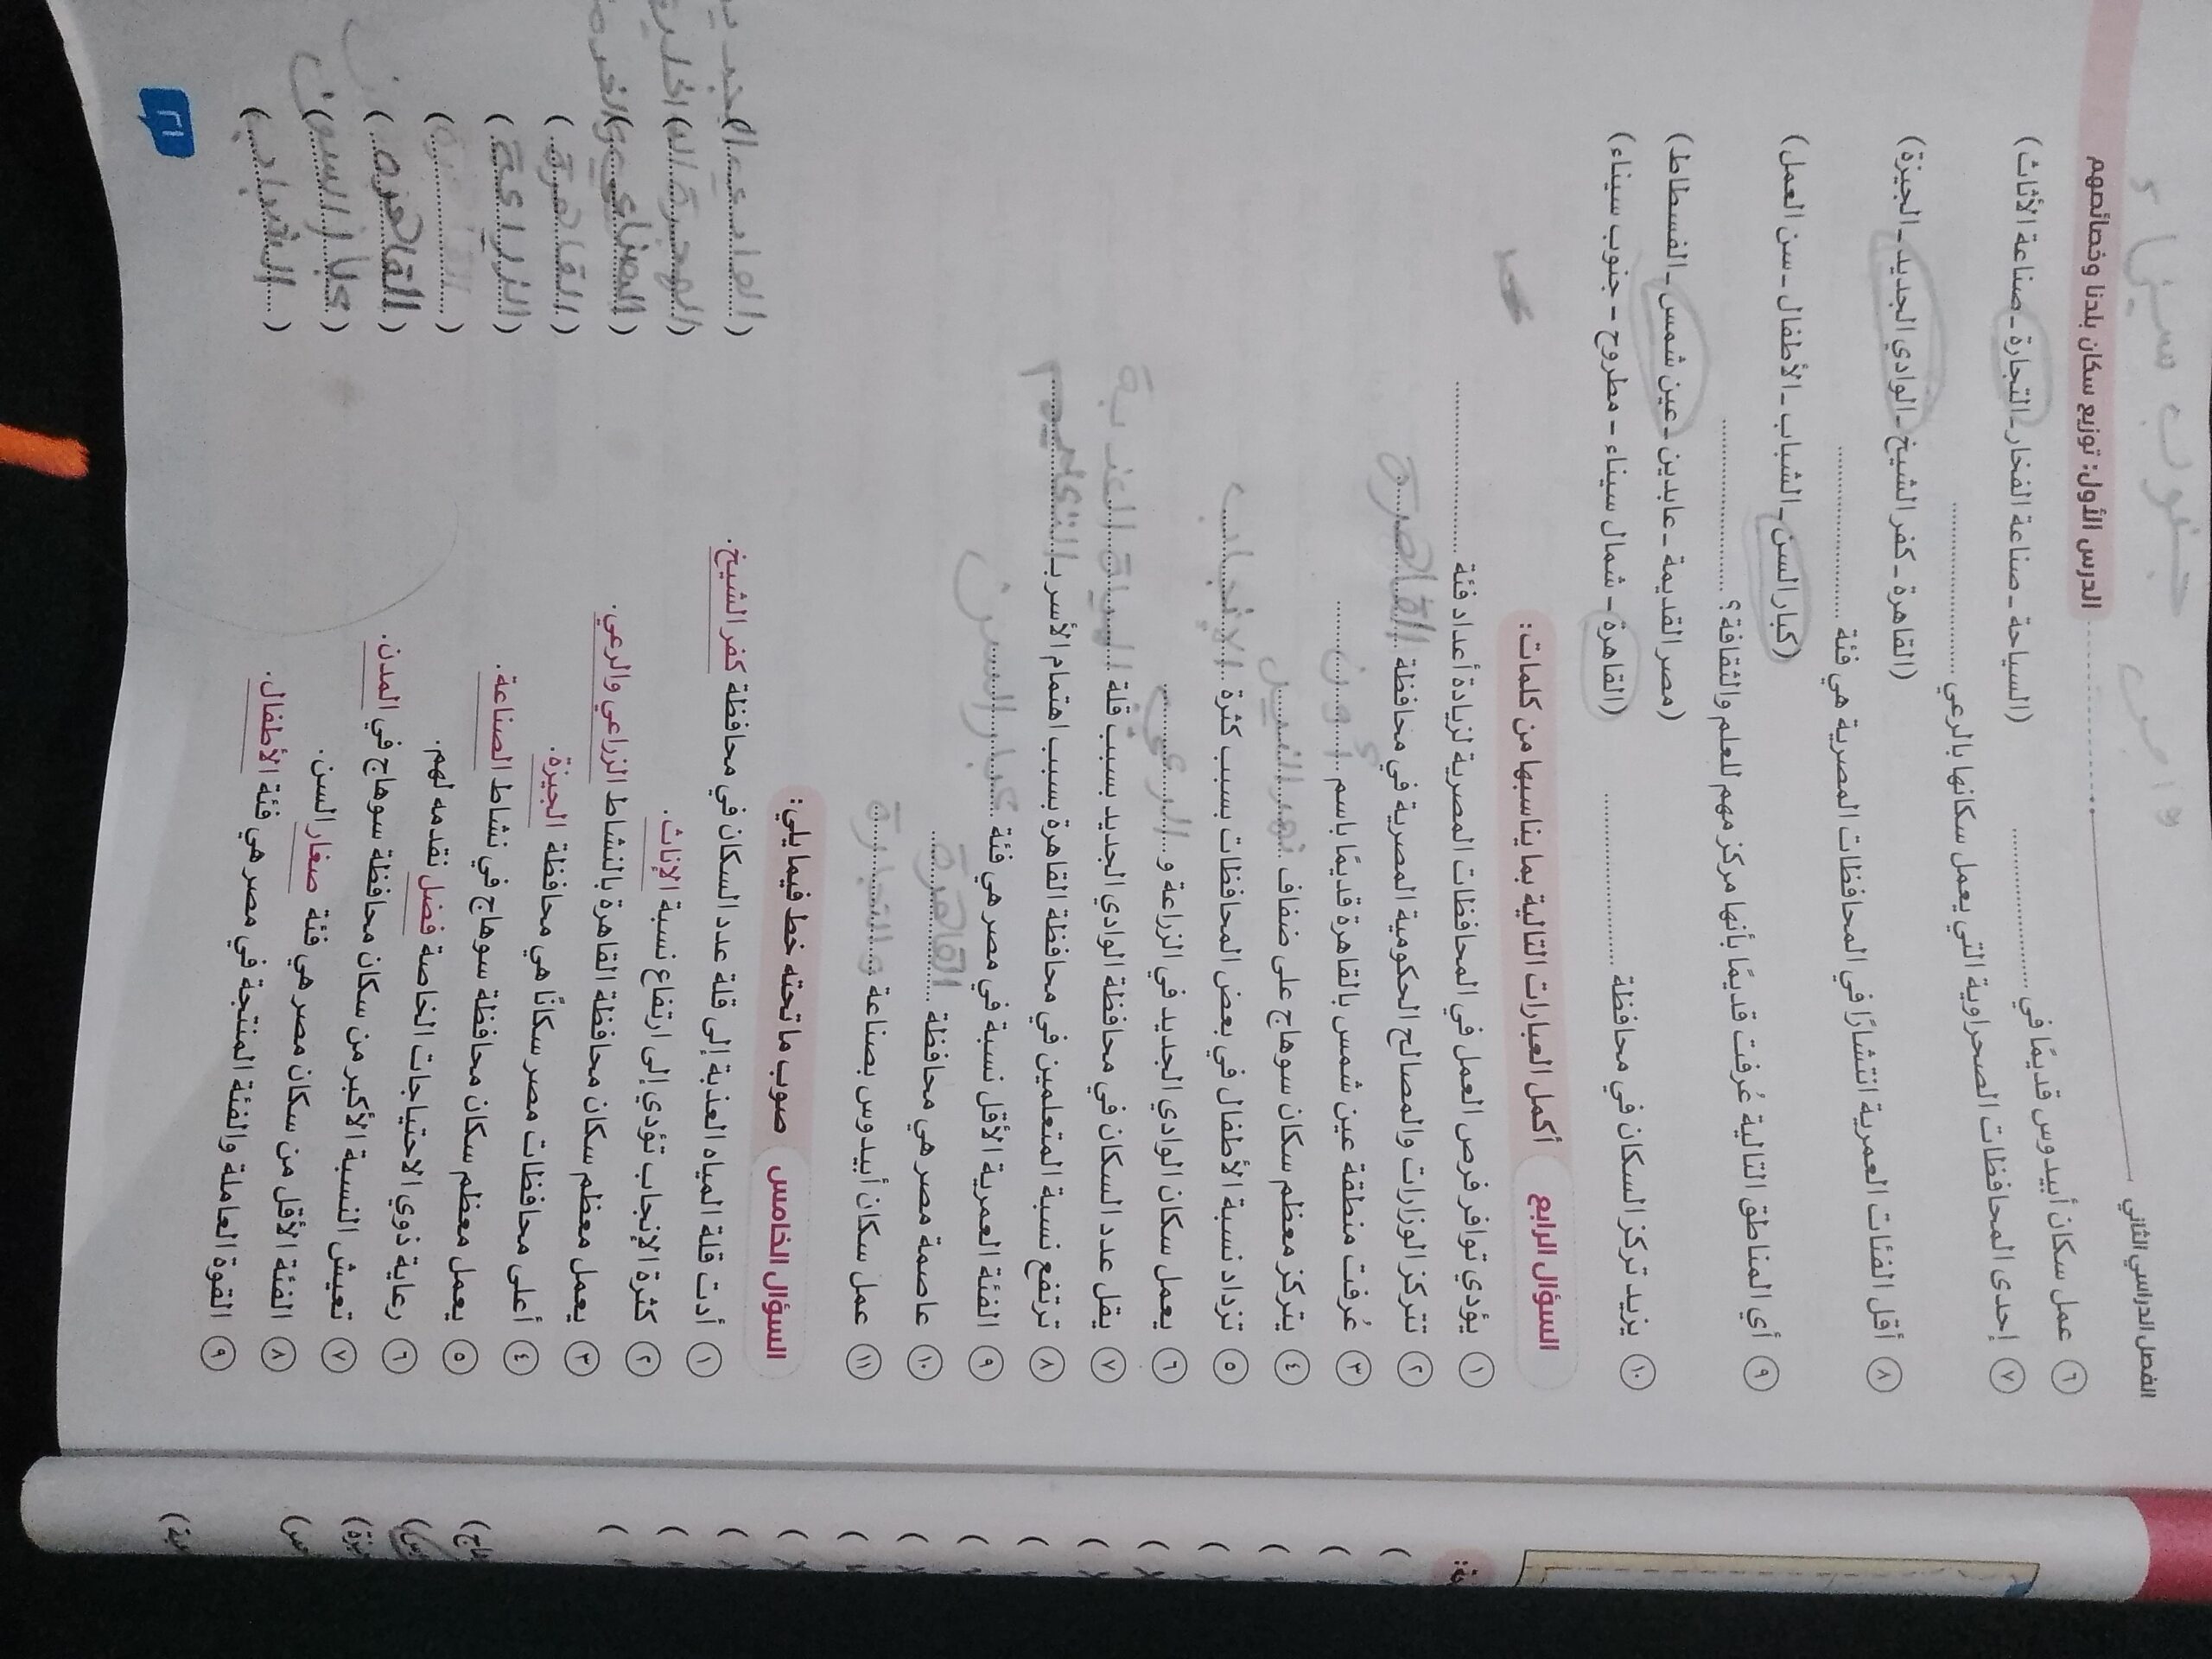 الفصل الدراسي الثاني
الدرس الأول: توزيع سكان بلدنا وخصائصهم
٦ عمل سكان أبيدوس قديمًا في ....................
(السياحة - صناعة الفخار - التجارة - صناعة الأثاث)
٧ إحدى المحافظات الصحراوية التي يعمل سكانها بالرعي ....................
(القاهرة - كفر الشيخ - الوادي الجديد - الجيزة)
٨ أقل الفئات العمرية انتشارًا في المحافظات المصرية هي فئة ....................
(كبار السن - الشباب - الأطفال - سن العمل)
٩ أي المناطق التالية عُرفت قديمًا بأنها مركز مهم للعلم والثقافة؟ ....................
(مصر القديمة - عابدين - عين شمس - الفسطاط)
١٠ يزيد تركز السكان في محافظة ....................
(القاهرة - شمال سيناء - مطروح - جنوب سيناء)
السؤال الرابع أكمل العبارات التالية بما يناسبها من كلمات:
١ يؤدي توافر فرص العمل في المحافظات المصرية لزيادة أعداد فئة ....................
٢ تتركز الوزارات والمصالح الحكومية المصرية في محافظة القاهرة
٣ عُرفت منطقة عين شمس بالقاهرة قديمًا باسم أون
٤ يتركز معظم سكان سوهاج على ضفاف نهر النيل
٥ تزداد نسبة الأطفال في بعض المحافظات بسبب كثرة الإنجاب
٦ يعمل سكان الوادي الجديد في الزراعة و الرعي
٧ يقل عدد السكان في محافظة الوادي الجديد بسبب قلة المياة العذبة
٨ ترتفع نسبة المتعلمين في محافظة القاهرة بسبب اهتمام الأسر بـ التعليم
٩ الفئة العمرية الأقل نسبة في مصر هي فئة كبار السن
١٠ عاصمة مصر هي محافظة القاهرة
١١ عمل سكان أبيدوس بصناعة والتجارة
السؤال الخامس صوب ما تحته خط فيما يلي:
١ أدت قلة المياه العذبة إلى قلة عدد السكان في محافظة كفر الشيخ. (الوادي الجديد)
٢ كثرة الإنجاب تؤدي إلى ارتفاع نسبة الإناث. ()
٣ يعمل معظم سكان محافظة القاهرة بالنشاط الزراعي والرعي. ()
٤ أعلى محافظات مصر سكانًا هي محافظة الجيزة. (القاهرة)
٥ يعمل معظم سكان محافظة سوهاج في نشاط الصناعة. (الزراعة)
٦ رعاية ذوي الاحتياجات الخاصة فضل نقدمه لهم. ()
٧ تعيش النسبة الأكبر من سكان محافظة سوهاج في المدن. ()
٨ الفئة الأقل من سكان مصر هي فئة صغار السن. (كبار السن)
٩ القوة العاملة والفئة المنتجة في مصر هي فئة الأطفال. (الشباب)
٢١